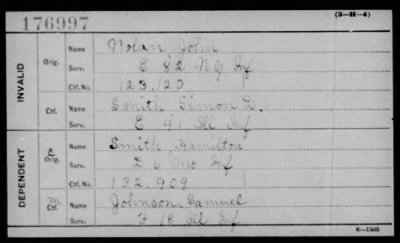 176997
(3-H-4)
INVALID
Orig. Name Nolan John
Serv. E 82 N.Y. Inf
Ctf. No. 123.120
Ctf. Name Smith Simon D.
Serv. E 41 Ill Inf
DEPENDENT
Orig. Name Smith Hamilton
Serv. D 6 Mo Inf
Ctf. No. 132.909
Ctf. Name Johnson Samuel
Serv. F 18 Ill Inf
6-1503